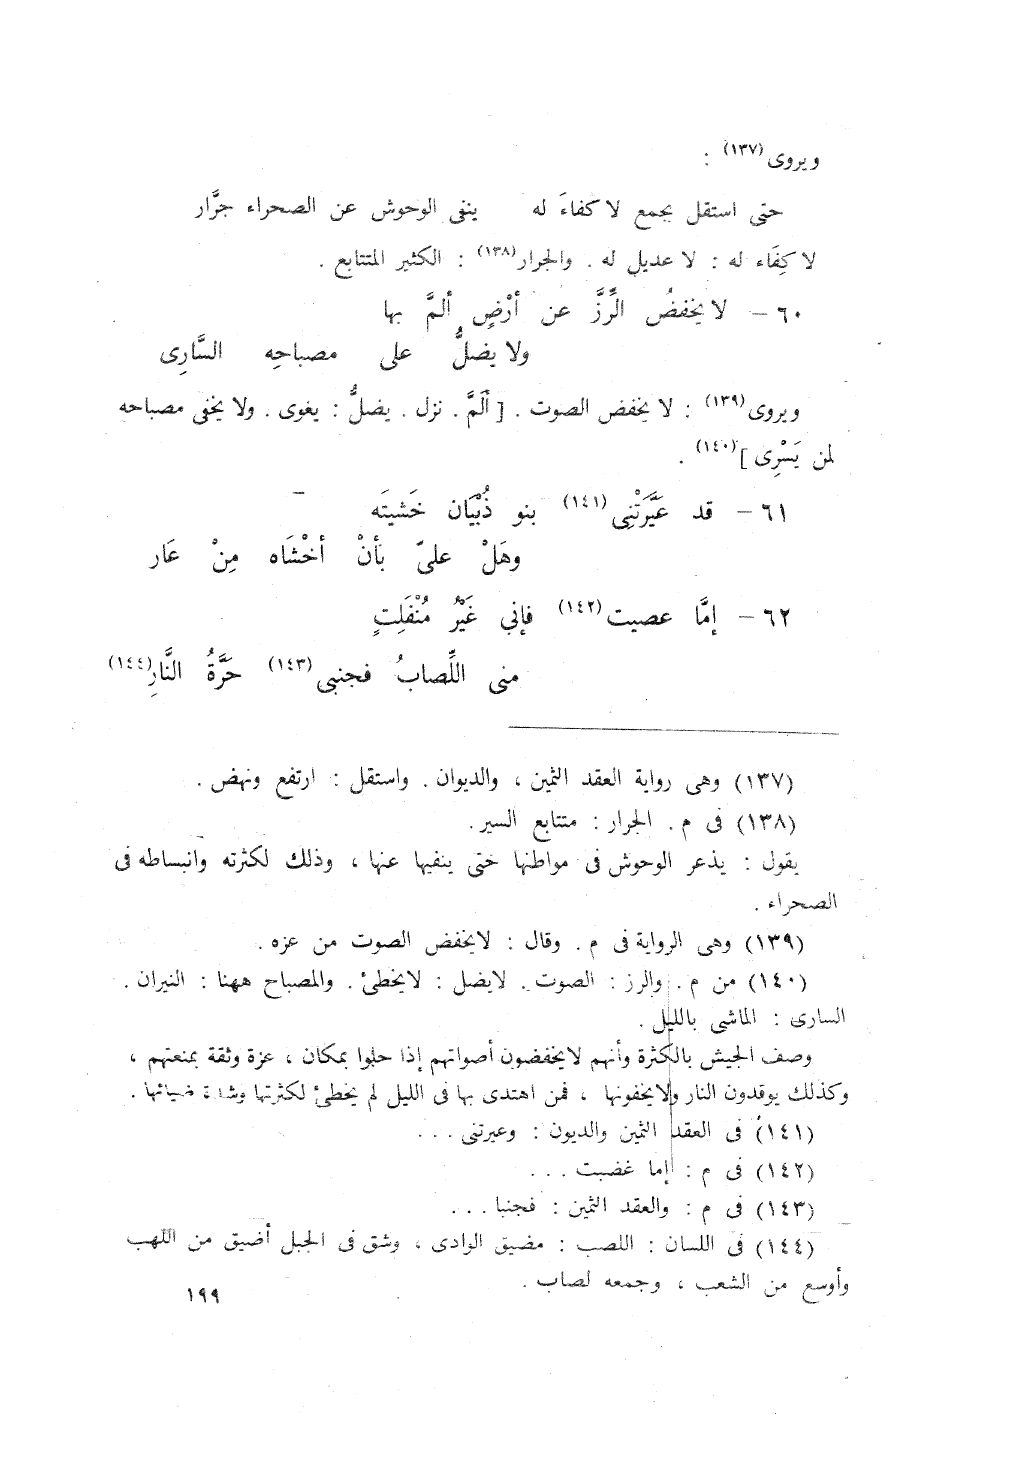 ويروى(١٣٧) :
حتى استقل بجمع لا كفاءَ له ينفى الوحوش عن الصحراء جرَّار
لا كِفَاء له : لا عديل له . والجرار(١٣٨) : الكثير المتتابع .
٦٠ – لا يخفضُ الرِّزَّ عن أرْضٍ ألمَّ بها
ولا يضلُّ على مصباحِه السَّارِى
ويروى(١٣٩) : لا يخفض الصوت . [ ألَمَّ . نزل . يضلُّ : يغوى . ولا يخفى مصباحه
لمن يَسْرِى ](١٤٠) .
٦١ – قد عَيَّرَتْنِى(١٤١) بنو ذُبْيَان خَشيتَه
وهَلْ علىّ بأنْ أخْشَاه مِنْ عَار
٦٢ – إمَّا عصيت(١٤٢) فإنى غَيْرُ مُنْفَلِتٍ
منى اللِّصابُ فجنبى(١٤٣) حَرَّةُ النَّارِ(١٤٤)
(١٣٧) وهى رواية العقد الثمين ، والديوان . واستقل : ارتفع ونهض .
(١٣٨) فى م . الجرار : متتابع السير .
يقول : يذعر الوحوش فى مواطنها حتى ينفيها عنها ، وذلك لكثرته وانبساطه فى
الصحراء .
(١٣٩) وهى الرواية فى م . وقال : لايخفض الصوت من عزه .
(١٤٠) من م . والرز : الصوت . لايضل : لايخطئ . والمصباح ههنا : النيران .
السارى : الماشى بالليل .
وصف الجيش بالكثرة وأنهم لايخفضون أصواتهم إذا حلوا بمكان ، عزة وثقة بمنعتهم ،
وكذلك يوقدون النار ولايخفونها ، فمن اهتدى بها فى الليل لم يخطئ لكثرتها وشدة ضيائها .
(١٤١) فى العقد الثمين والديون : وعيرتنى . . .
(١٤٢) فى م : إما غضبت . . .
(١٤٣) فى م : والعقد الثمين : فجنبا . . .
(١٤٤) فى اللسان : اللصب : مضيق الوادى ، وشق فى الجبل أضيق من اللهب
وأوسع من الشعب ، وجمعه لصاب .
١٩٩